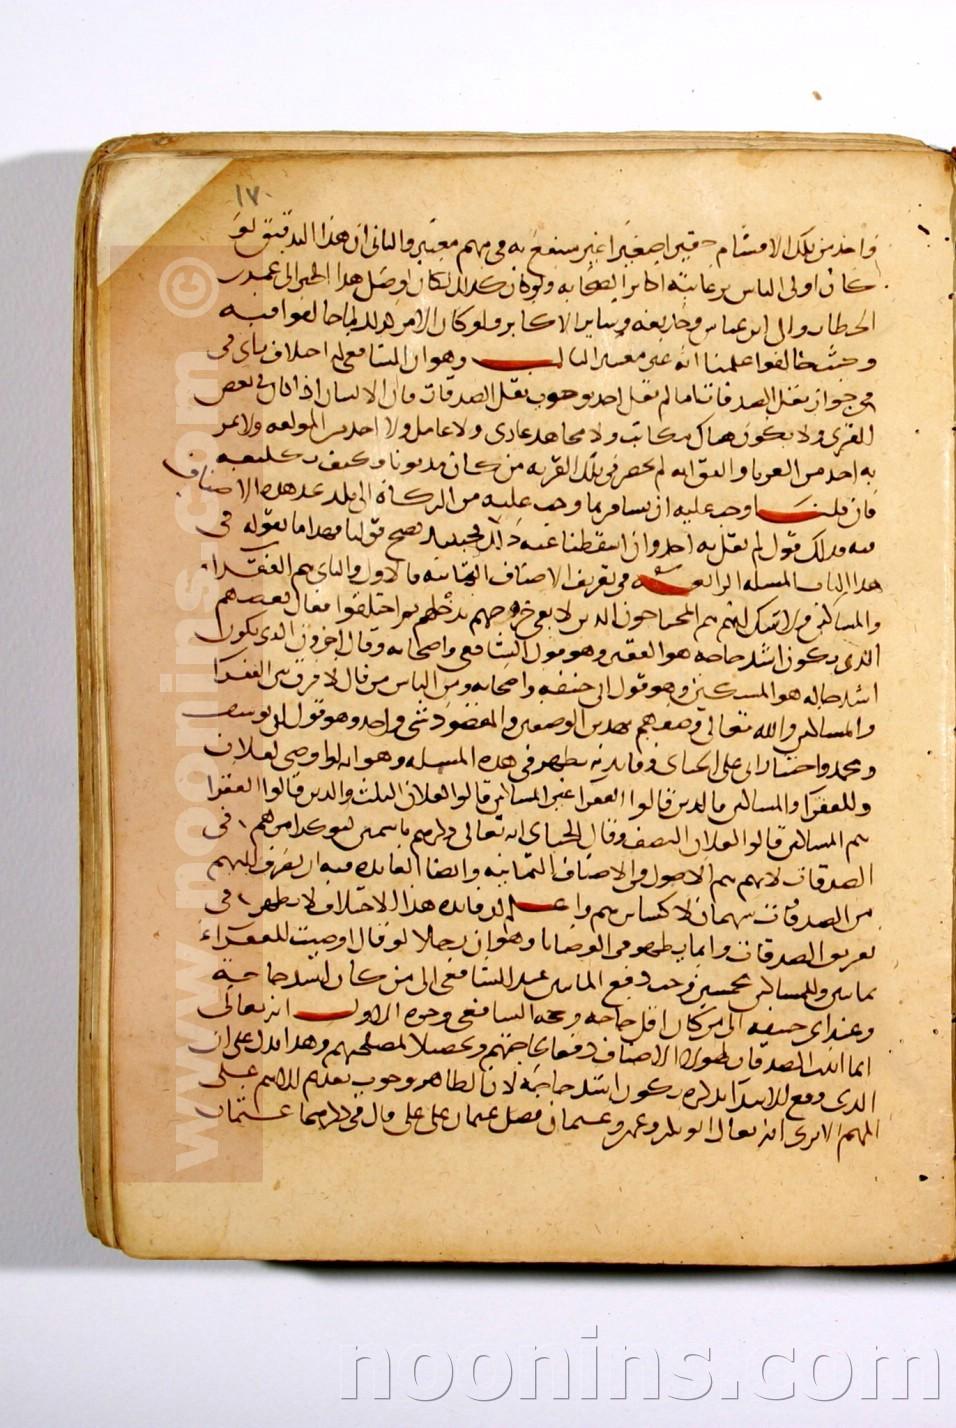 ١٧٠
واحد من تلك الاقسام حقيرا صغيرا غير منتفع به في مهم معتبر والثاني ان هذا التدقيق لو
كان اولى الناس برعايته اكابر الصحابه ولو كان كذلك لكان اوصل هذا الخبر الى عمر بن
الخطاب والى ابن عباس وحذيفه وساير الاكابر ولو كان الامر كذلك لما خالفوا فيه
وحيث خالفوا علمنا انه غير معتبر الثالث وهو ان الشافعي له اختلاف راي في
في جواز نقل الصدقات اما لم يقل احد بوجوب نقل الصدقات فان الانسان اذا كان في بعض
القرى ولا يكون هناك مكاتب ولا مجاهد غازي ولا عامل ولا احد من المولفه ولا يمر
به احد من الغربا واتفق انه لم يحضر في تلك القريه من كان مديونا فكيف تكليفه
فان قلنا وجب عليه ان يسافر بما وجب عليه من الزكاة الى بلد يجد هذه الاصناف
فيه فذلك قول لم يقل به احد وان اسقطنا عنه ذلك فحينئذ يصح قولنا فهذا ما نقوله في
هذا الباب المسله الرابعه في تعريف الاصناف الثمانيه فالاول والثاني هم الفقراء
والمساكين ولا شك انهم هم المحتاجون الذين لا يفي خرجهم بدخلهم ثم اختلفوا فقال بعضهم
الذي يكون اشد حاجه هو الفقير وهو قول الشافعي واصحابه وقال اخرون الذي يكون
اشد حاجه هو المسكين وهو قول ابي حنيفه واصحابه ومن الناس من قال لا فرق بين الفقرا
والمساكين والله تعالى وصفهم بهذين الوصفين والمقصود شي واحد وهو قول ابي يوسف
ومحمد واختيار ابي علي الجباي وفايدته تظهر في هذه المسله وهو انه لو اوصى لفلان
وللفقرا والمساكين فالذين قالوا الفقرا غير المساكين قالوا لفلان الثلث والذين قالوا الفقرا
هم المساكين قالوا لفلان النصف وقال الجباي انه تعالى ذكرهم باسمين ليوكد امرهم في
الصدقات لانهم هم الاصول في الاصناف الثمانيه وايضا الفايده فيه ان يصرف اليهم
من الصدقات سهمان لا كسايرهم واعلم ان فايده هذا الاختلاف لا يظهر في
تفريق الصدقات وانما يظهر في الوصايا وهو ان رجلا لو قال اوصيت للفقراء
بمايتين وللمساكين بخمسين وجب دفع المايتين عند الشافعي الى من كان اشد حاجة
وعند ابي حنيفه الى من كان اقل حاجه وحجه الشافعي وجوه الاول انه تعالى
انما اثبت الصدقات لهولاء الاصناف دفعا لحاجتهم وتحصيلا لمصلحتهم وهذا يدل على ان
الذي وقع الابتدا بذكره يكون اشد حاجة لان الظاهر وجوب تقديم الاهم على
المهم الا ترى انه يقال ابو بكر وعمر وعثمان فضل عثمان على علي قال في ذكرهما عثمان
www.noonins.com ©
noonins.com